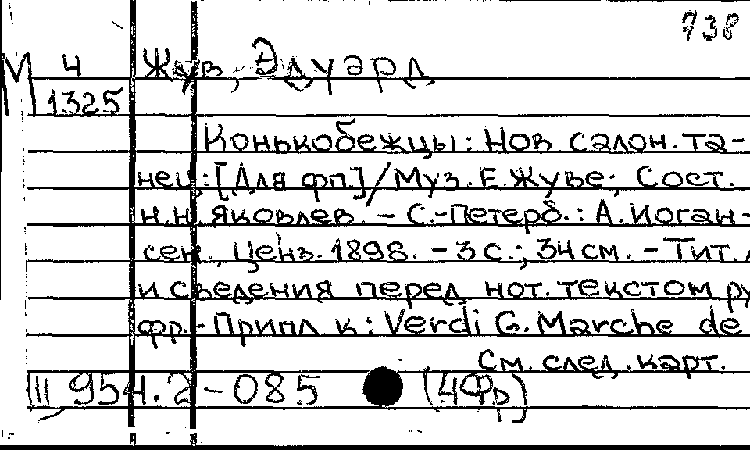 738
М 4 Жув, Эдуард
1325
Конькобежцы: Нов салон. та-
нец: [Для фп.] / Муз. Е. Жуве; Сост.
Н.Н. Яковлев. - С.-Петерб.: А. Иоган-
сен, Ценз. 1898. - 3 с.; 34 см. - Тит. л
и сведения перед нот. текстом ру
фр. - Прилл. к: Verdi G. Marche de
См. след. карт.
III 954.2-085 (4Фр)